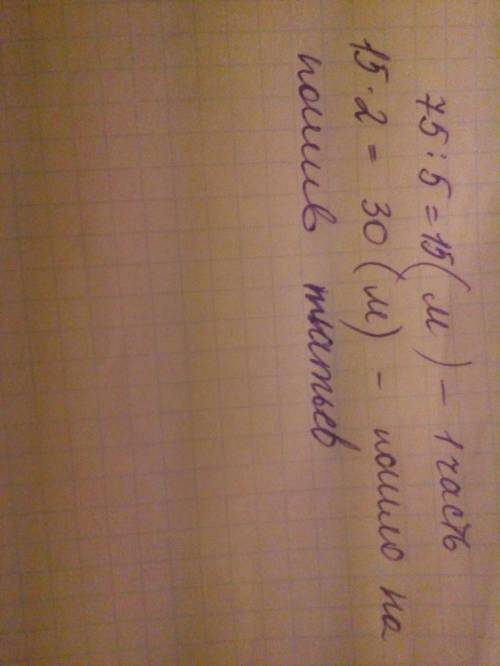 75 : 5 = 15 (м) - 1 часть
15 · 2 = 30 (м) - пошло на
пошив платьев